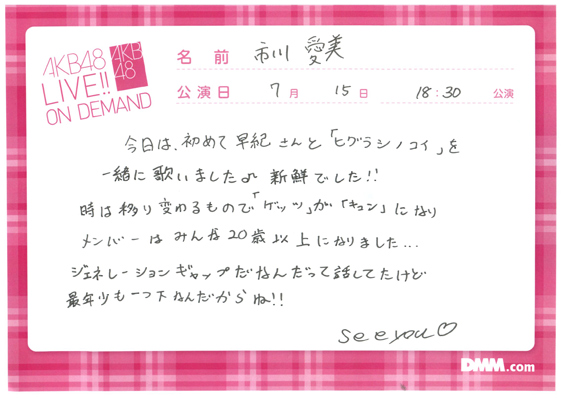 AKB48
LIVE!!
ON DEMAND
AKB
48
名前 市川 愛美
公演日 7月 15日 18:30 公演
今日は、初めて早紀さんと「ヒグラシノコイ」を
一緒に歌いました♫ 新鮮でした!!
時は移り変わるもので「ゲッツ」が「キュン」になり
メンバーはみんな20歳以上になりました...
ジェネレーションギャップだなんだって話してたけど
最年少も一つ下なんだからね!!
see you♡
DMM.com